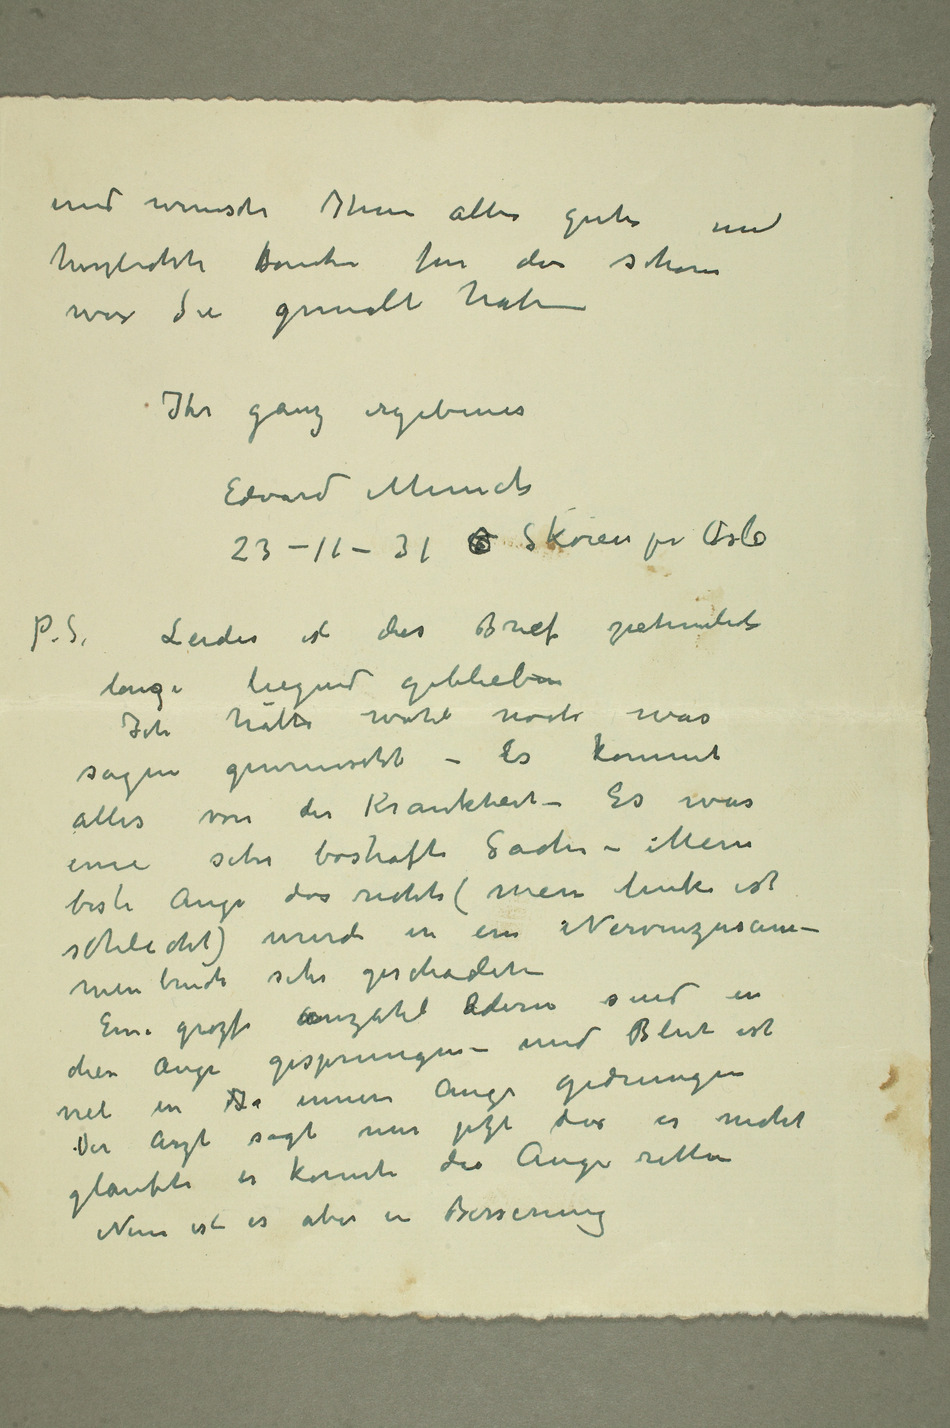 und wünsche Ihnen alles gute und
herzlichste Danke für das schöne
was Sie gemalt haben
Ihr ganz ergebenes
Edvard Munch
23–11–31 Skøien pr Oslo
P.S. Leider ist der Brief ziehmlich
lange liegend geblieben
Ich hätte wohl noch was
sagen gewunscht – Es kommt
alles von der Krankheit – Es war
eine sehr boshafte Sache – Mein
beste Auge das rechte (mein linke ist
schlecht) wurde in ein Nervenzusam–
menbruch sehr geschadet
Eine grozse Anzahl Adern sind in
dies Auge gesprungen – und Blut ist
viel in Da innere Auge gedrungen
Der Arzt sagt mir jetzt das er nicht
glaubte er konnte das Auge retten
Nun ist es aber in Besserung